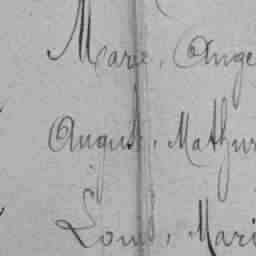 Marie, Ange
August, Mathur
Louis, Mari